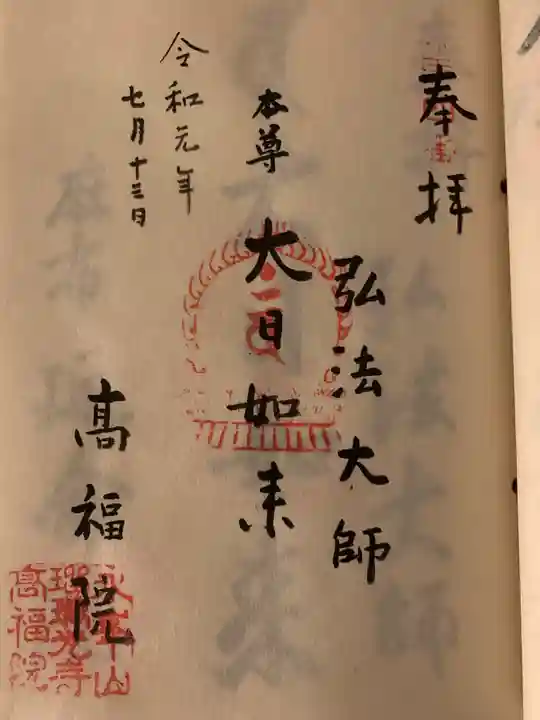 奉拝
弘法大師
本尊 大日如来
令和元年
七月十三日
高福院
高福院